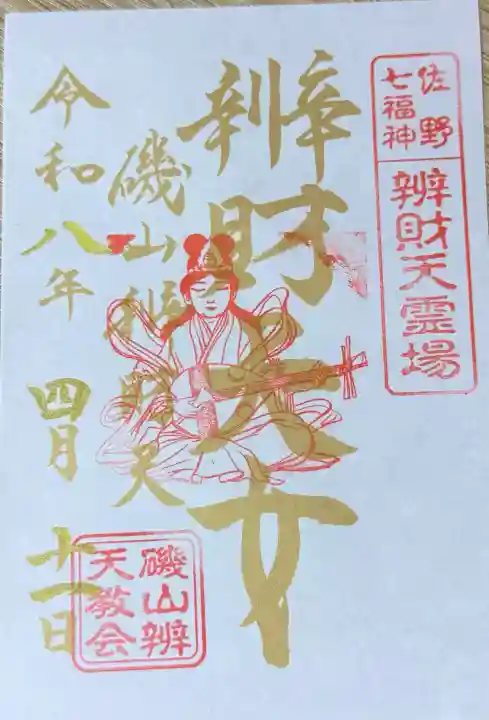 佐野
七福神
辨財天霊場
辨財天女
磯山辨財天
令和八年 四月 十一日
磯山辨
天教会